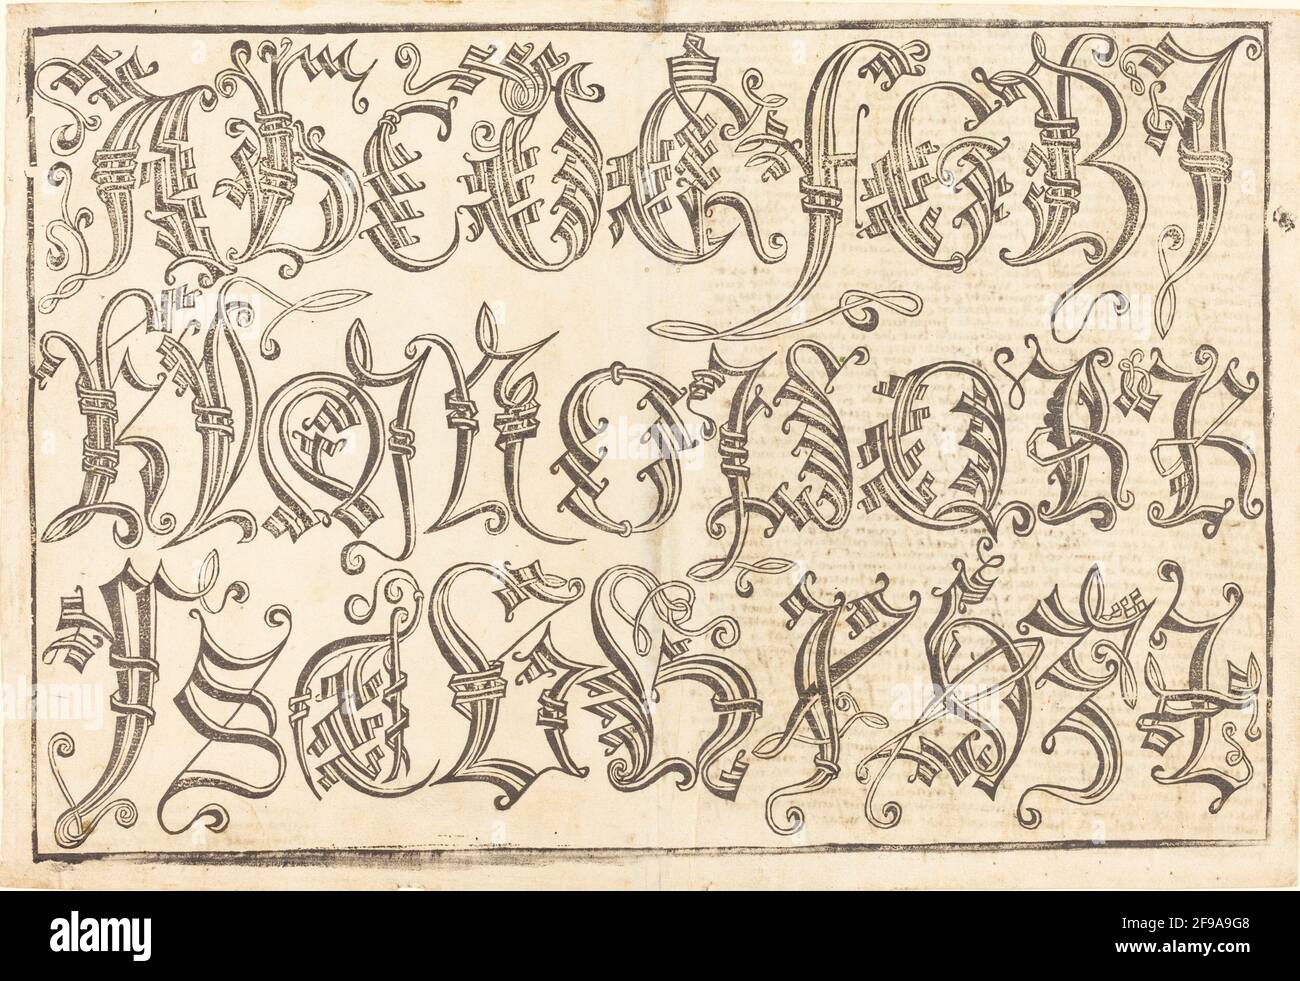 A B C D E F G H I
K L M N O P Q R R
ſ S T V W X Y Z
alamy
Image ID: 2F9A9G8
www.alamy.com